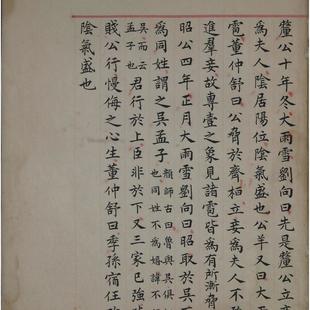 釐公十年冬大雨雪劉向曰先是釐公立妾
爲夫人陰居陽位陰氣盛也公羊又曰大雨
雹董仲舒曰公脅於齊桓立妾爲夫人不敢
進羣妾故專壹之象見諸雹皆爲有所漸脅
昭公四年正月大雨雪劉向曰昭取於吳而
爲同姓謂之吳孟子
顏師古曰魯與吳俱
也同姓不爲婚諱不
吳而云
孟子也
君行於上臣非於下又三家已強
賤公行慢侮之心生董仲舒曰季孫宿任政
陰氣盛也